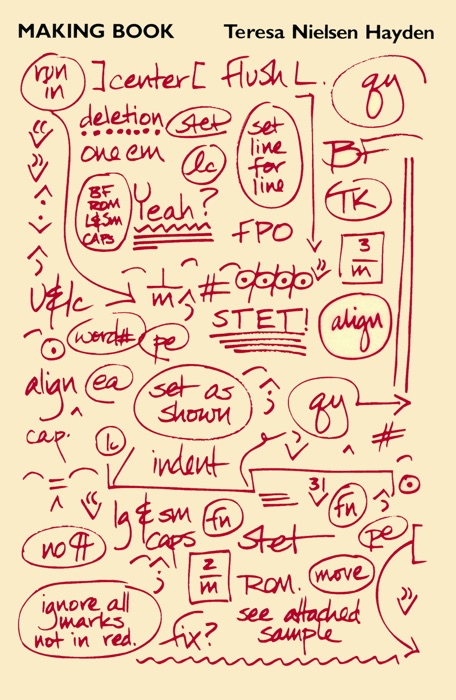 MAKING BOOK Teresa Nielsen Hayden
run
in
]center[
flush L.
qy
deletion
stet
one em
lc
set
line
for
line
BF
TK
BF
ROM
L&Sm
CAPS
Yeah?
FPO
3
m
U&lc
1
m
#
STET!
align
word#
pe
align
ea
set as
shown
;
qy
cap.
lc
indent
#
=
31
fn
lg & sm
caps
fn
stet
pe
[
no ¶
2
m
ROM.
move
;
ignore all
marks
not in red.
fix?
see attached
sample